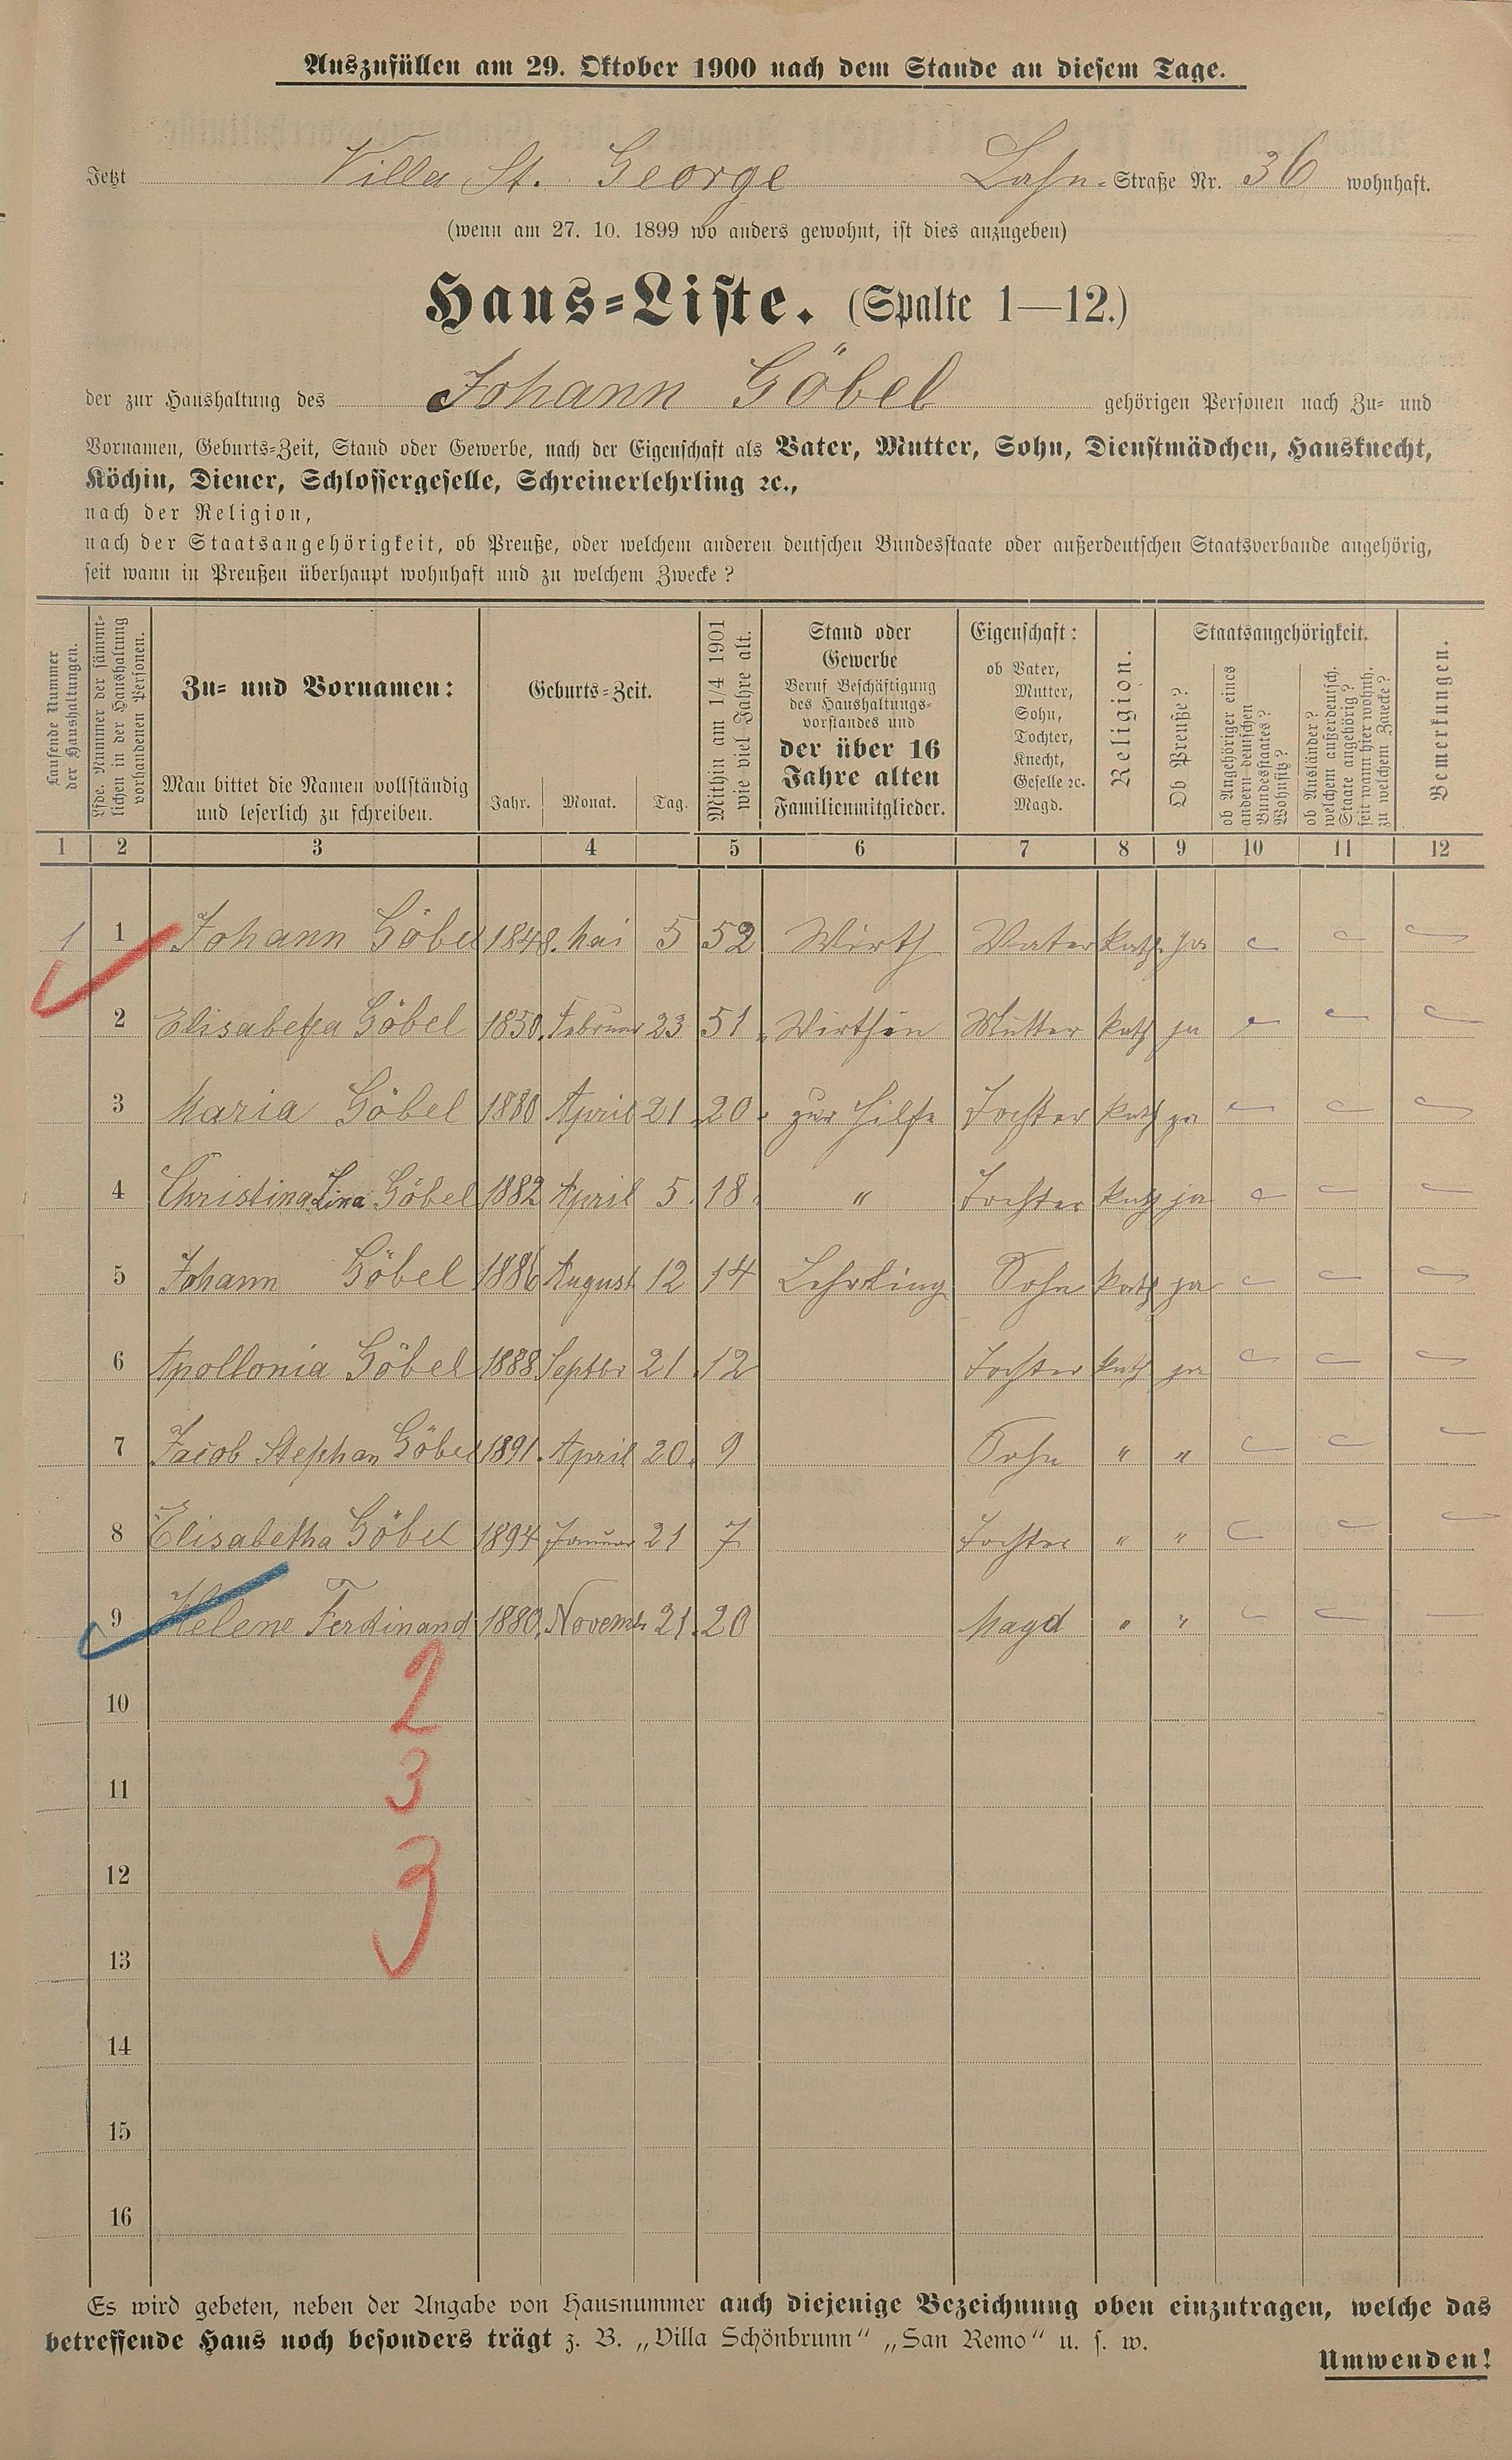 Auszufüllen am 29. Oktober 1900 nach dem Stande an diesem Tage.
Jetzt Villa St. George Lahn-Straße Nr. 36 wohnhaft.
(wenn am 27. 10. 1899 wo anders gewohnt, ist dies anzugeben)
Haus-Liste. (Spalte 1—12.)
der zur Haushaltung des Johann Göbel gehörigen Personen nach Zu- und
Vornamen, Geburts-Zeit, Stand oder Gewerbe, nach der Eigenschaft als Vater, Mutter, Sohn, Dienstmädchen, Hausknecht,
Köchin, Diener, Schlossergeselle, Schreinerlehrling ꝛc.,
nach der Religion,
nach der Staatsangehörigkeit, ob Preuße, oder welchem anderen deutschen Bundesstaate oder außerdeutschen Staatsverbande angehörig,
seit wann in Preußen überhaupt wohnhaft und zu welchem Zwecke?
Laufende Nummer
der Haushaltungen.
Lfde. Nummer der sämmt-
lichen in der Haushaltung
vorhandenen Personen.
Zu- und Vornamen:
Man bittet die Namen vollständig
und leserlich zu schreiben.
Geburts-Zeit.
Jahr. Monat. Tag.
Mithin am 1/4 1901
wie viel Jahre alt.
Stand oder
Gewerbe
Beruf Beschäftigung
des Haushaltungs-
vorstandes und
der über 16
Jahre alten
Familienmitglieder.
Eigenschaft:
ob Vater,
Mutter,
Sohn,
Tochter,
Knecht,
Geselle ꝛc.
Magd.
Religion.
Staatsangehörigkeit.
Ob Preuße?
ob Angehöriger eines
andern deutschen
Bundesstaates?
Wohnsitz?
ob Ausländer?
welchem außerdeutsch.
Staate angehörig?
seit wann hier wohnh.
zu welchem Zwecke?
Bemerkungen.
1 2 3 4 5 6 7 8 9 10 11 12
1 1 Johann Göbel 1848. Mai 5 52 Wirth Vater kath. ja
2 Elisabetha Göbel 1850. Februar 23 51 Wirthin Mutter kath ja
3 Maria Göbel 1880 April 21 20 zur Hilfe Tochter kath ja
4 Christina Lina Göbel 1882 April 5. 18. " Tochter kath ja
5 Johann Göbel 1886 August 12 14 Lehrling Sohn kath ja
6 Apollonia Göbel 1888 Septbr 21 12 Tochter kath ja
7 Jacob Stephan Göbel 1891. April 20. 9 Sohn " "
8 Elisabetha Göbel 1894 Januar 21 7 Tochter " "
9 Helene Ferdinand 1880. Novemb. 21. 20 Magd " "
10 2
11 3
12 3
13
14
15
16
Es wird gebeten, neben der Angabe von Hausnummer auch diejenige Bezeichnung oben einzutragen, welche das
betreffende Haus noch besonders trägt z. B. „Villa Schönbrunn“ „San Remo“ u. s. w.
Umwenden!